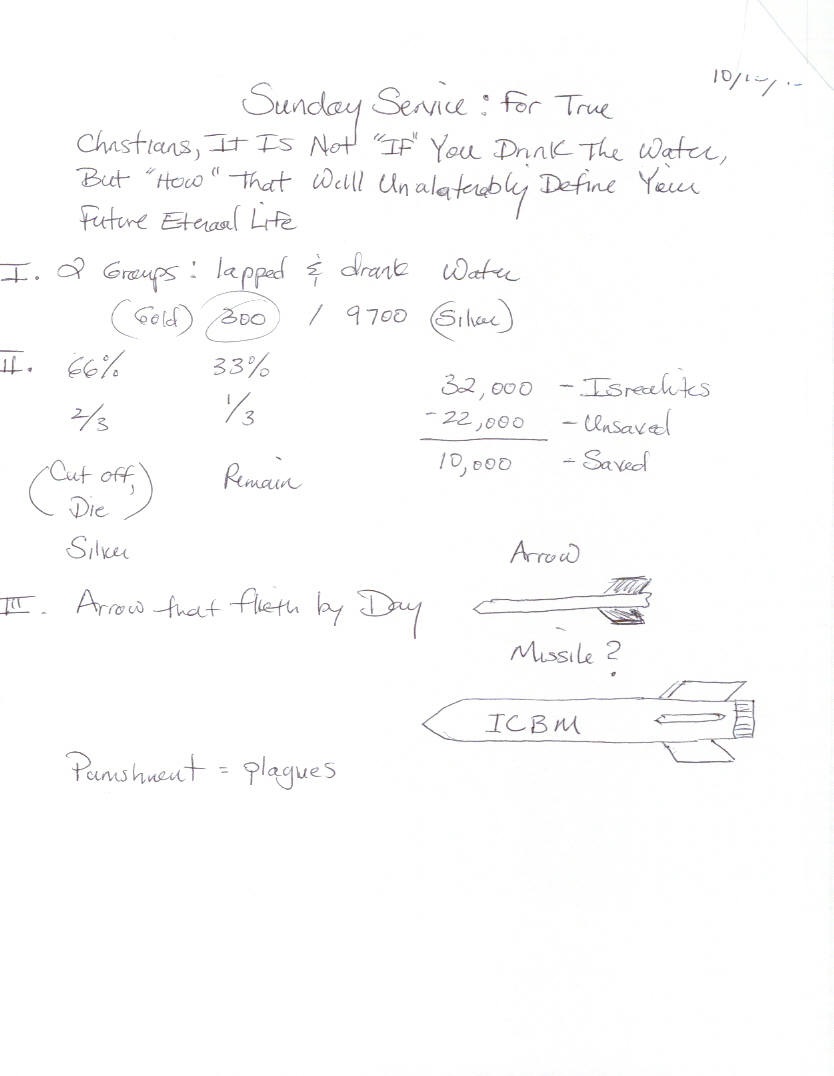 Sunday Service: For True
Christians, It Is Not "IF" You Drink The Water,
But "How" That Will Unalaterably Define Your
Future Eternal Life
I. 2 Groups: lapped & drank Water
(Gold) 300 / 9700 (Silver)
II. 66% 33%
2/3 1/3
(Cut off, Die) Remain
Silver
32,000 - Isrealites
-22,000 - Unsaved
10,000 - Saved
III. Arrow that flieth by Day
Arrow
Missile?
ICBM
Punishment = plagues